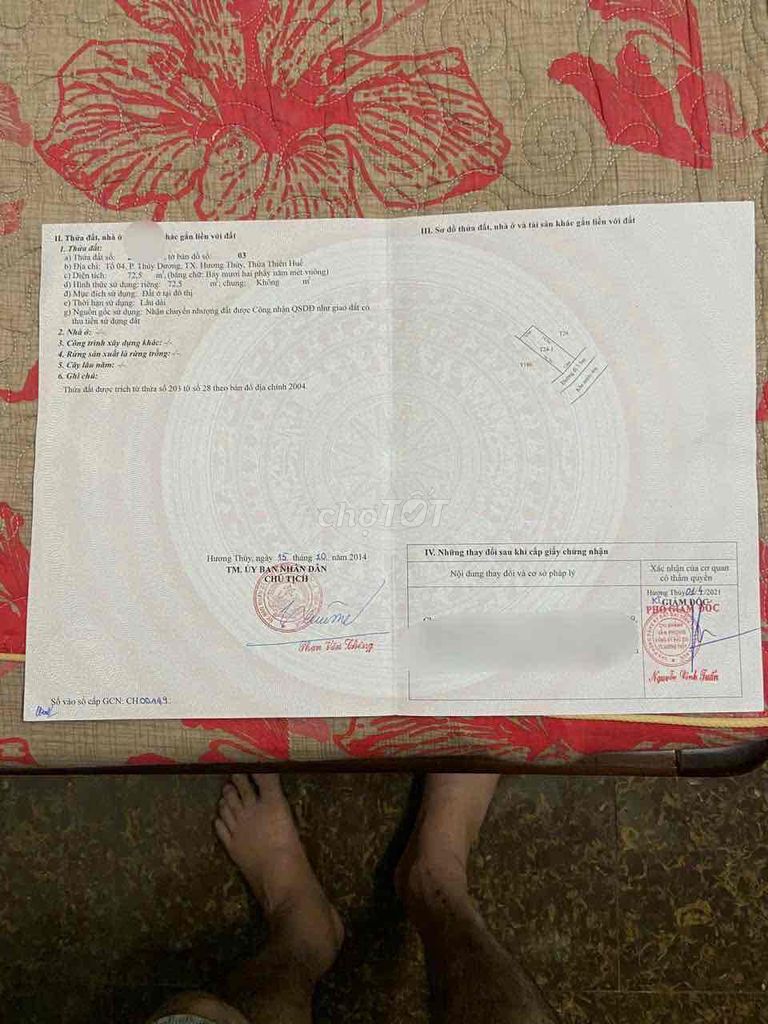 II. Thửa đất, nhà ở hác gắn liền với đất
1. Thửa đất:
a) Thửa đất số: , tờ bản đồ số: 03
b) Địa chỉ: Tổ 04, P. Thủy Dương, TX. Hương Thủy, Thừa Thiên Huế
c) Diện tích: 72,5 m², (bằng chữ: Bảy mươi hai phẩy năm mét vuông)
d) Hình thức sử dụng: riêng: 72,5 m², chung: Không m²
đ) Mục đích sử dụng: Đất ở tại đô thị
e) Thời hạn sử dụng: Lâu dài
g) Nguồn gốc sử dụng: Nhận chuyển nhượng đất được Công nhận QSDĐ như giao đất có
thu tiền sử dụng đất
2. Nhà ở: -/-
3. Công trình xây dựng khác: -/-
4. Rừng sản xuất là rừng trồng: -/-
5. Cây lâu năm: -/-
6. Ghi chú:
Thửa đất được trích từ thửa số 203 tờ số 28 theo bản đồ địa chính 2004.
Hương Thủy, ngày 15 tháng 10 năm 2014
TM. ỦY BAN NHÂN DÂN
CHỦ TỊCH
Phan Văn Thông
Số vào sổ cấp GCN: CH00149
III. Sơ đồ thửa đất, nhà ở và tài sản khác gắn liền với đất
IV. Những thay đổi sau khi cấp giấy chứng nhận
Nội dung thay đổi và cơ sở pháp lý
Xác nhận của cơ quan
có thẩm quyền
Hương Thủy /2021
KT GIÁM ĐỐC
PHÓ GIÁM ĐỐC
Nguyễn Vĩnh Tuấn
choTỐT